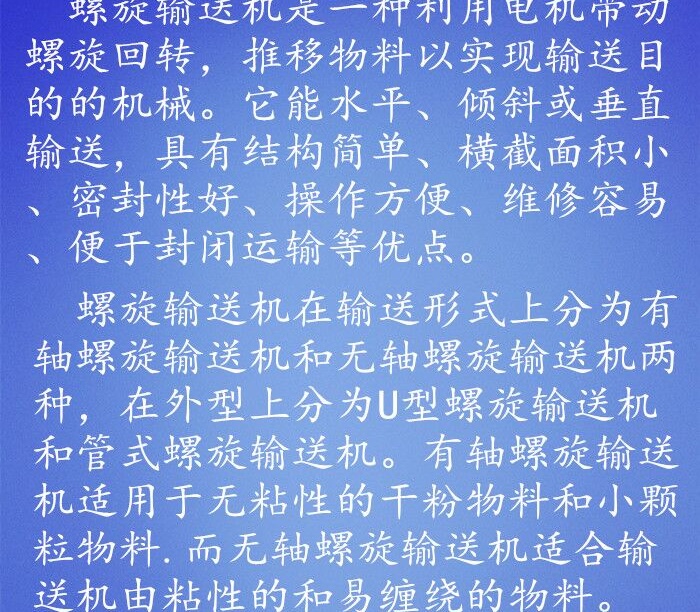 螺旋输送机是一种利用电机带动
螺旋回转，推移物料以实现输送目
的的机械。它能水平、倾斜或垂直
输送，具有结构简单、横截面积小
、密封性好、操作方便、维修容易
、便于封闭运输等优点。
螺旋输送机在输送形式上分为有
轴螺旋输送机和无轴螺旋输送机两
种，在外型上分为U型螺旋输送机
和管式螺旋输送机。有轴螺旋输送
机适用于无粘性的干粉物料和小颗
粒物料.而无轴螺旋输送机适合输
送机由粘性的和易缠绕的物料。